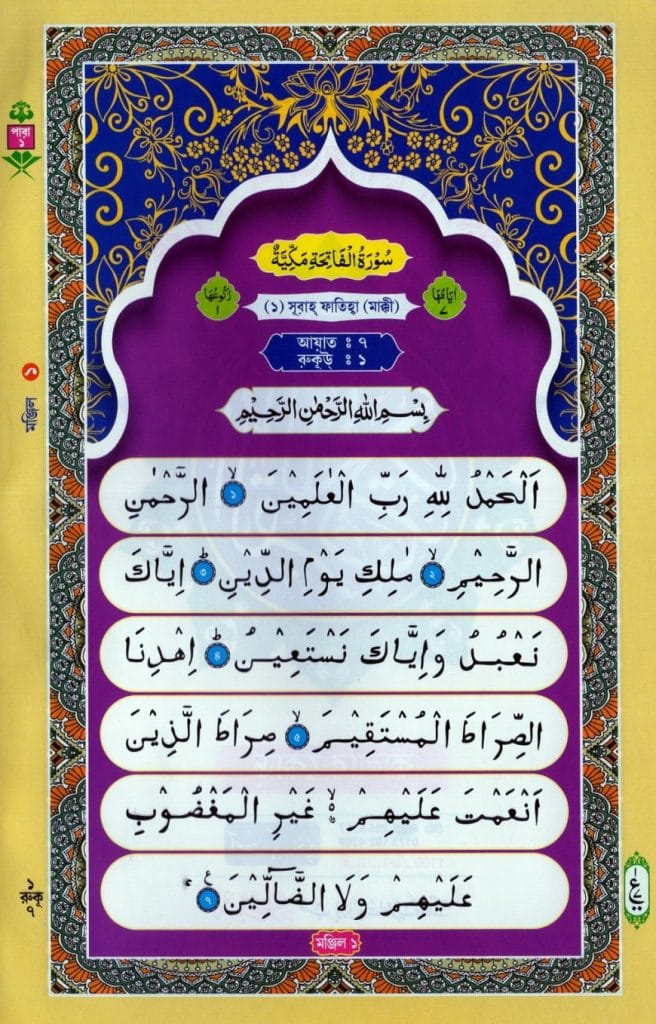 পারা
১
سُوْرَةُ الْفَاتِحَةِ مَكِّيَّةٌ
اٰيَاتُهَا
٧
(১) সূরাহ্ ফাতিহা (মাক্কী)
رُكُوْعُهَا
١
আয়াত ঃ ৭
রুকূ ঃ ১
بِسْمِ اللهِ الرَّحْمٰنِ الرَّحِيْمِ
اَلْحَمْدُ لِلّٰهِ رَبِّ الْعٰلَمِيْنَ ۙ ১ الرَّحْمٰنِ
الرَّحِيْمِ ۙ ২ مٰلِكِ يَوْمِ الدِّيْنِ ؕ ৩ اِيَّاكَ
نَعْبُدُ وَاِيَّاكَ نَسْتَعِيْنُ ؕ ৪ اِهْدِنَا
الصِّرَاطَ الْمُسْتَقِيْمَ ۙ ৫ صِرَاطَ الَّذِيْنَ
اَنْعَمْتَ عَلَيْهِمْ ۙ غَيْرِ الْمَغْضُوْبِ
عَلَيْهِمْ وَلَا الضَّآلِّيْنَ ৭
মঞ্জিল ১
মঞ্জিল ১
১
রুকূ
৭